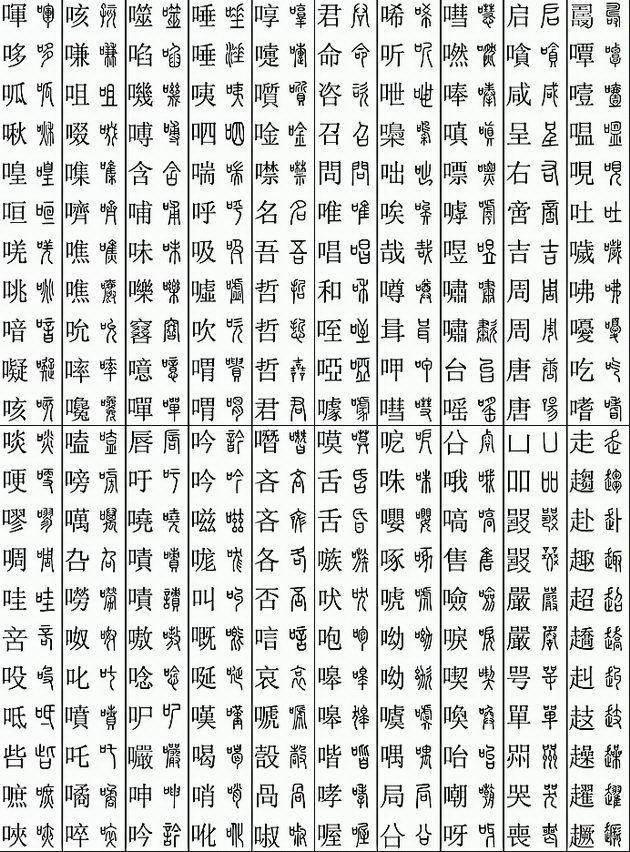 喗 咳 噬 唾 啍 君 唏 嘒 启
哆 嗛 啗 唾 嚏 命 听 嘫 嗿 嘾
呱 咀 嘰 咦 咨 呭 唪 咸 噎
啾 啜 呬 唫 召 嘄 嗔 呈 嗢
喤 含 喘 噤 問 咄 嘌 右 哯
咺 嚌 哺 呼 名 唯 唉 嘑 啻 吐
唴 噍 味 吸 吾 唱 哉 吉 噦
咷 噍 嚛 嘘 哲 和 噂 嘯 周 咈
喑 吮 吹 哲 咥 咠 嘯 周 嚘
噫 喟 哲 啞 呷 台 唐 吃
咳 嚵 嘽 喟 君 噱 嘒 嗂 唐 嗜
啖 嗑 唇 吟 噆 嗼 呝 㕣 凵 走
哽 嗙 吁 吟 吝 舌 咮 哦 吅 趨
嘐 噧 嘵 嗞 吝 舌 嚶 嗃 赴
啁 叴 嘖 哤 各 嗾 啄 售 趣
哇 嘮 嘖 叫 否 吠 唬 噞 嚴 超
呶 嗷 嘅 唁 咆 呦 唳 嚴 趫
吺 叱 唸 唌 哀 嗥 呦 喫 咢 赳
呧 噴 嘆 嗁 嗥 噳 喚 單
呰 吒 喝 喈 喁 咍 喌 趮
嗻 噊 呻 哨 咼 哮 局 嘲 哭 趯
唊 啐 吟 吪 喔 㕣 呀 喪